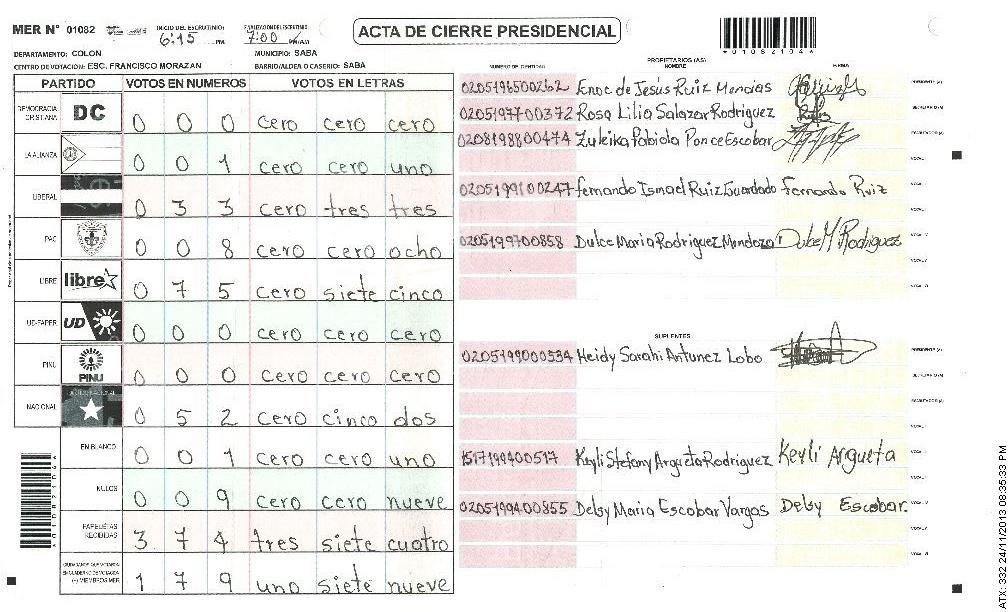 MER N° 01082 INICIO DEL ESCRUTINIO 6:15 PM FINALIZACION DEL ESCRUTINIO 7:00 PM/AM
ACTA DE CIERRE PRESIDENCIAL
*01082104*
DEPARTAMENTO: COLON MUNICIPIO: SABA
CENTRO DE VOTACION: ESC. FRANCISCO MORAZAN BARRIO/ALDEA O CASERIO: SABA
PARTIDO VOTOS EN NUMEROS VOTOS EN LETRAS
DEMOCRACIA CRISTIANA DC 0 0 0 cero cero cero
LA ALIANZA 0 0 1 cero cero uno
LIBERAL 0 3 3 cero tres tres
PAC 0 0 8 cero cero ocho
LIBRE libre 0 7 5 cero siete cinco
UD-FAPER UD 0 0 0 cero cero cero
PINU PINU 0 0 0 cero cero cero
NACIONAL 0 5 2 cero cinco dos
EN BLANCO 0 0 1 cero cero uno
NULOS 0 0 9 cero cero nueve
PAPELETAS RECIBIDAS 3 7 4 tres siete cuatro
(+) MIEMBROS MER 1 7 9 uno siete nueve
PROPIETARIOS (AS)
NUMERO DE IDENTIDAD NOMBRE FIRMA
0205196500262 Enoc de Jesús Ruiz Mencias
0205197700372 Rosa Lilia Salazar Rodriguez
0208198800474 Zuleika Fabiola Ponce Escobar
0205199100247 Fernando Ismael Ruiz Guardado Fernando Ruiz
0205199700858 Dulce Maria Rodriguez Mendoza Dulce M Rodriguez
SUPLENTES
0205199000534 Heidy Sarahi Antunez Lobo
1517199400517 Keyli Stefany Argueta Rodriguez Keyli Argueta
0205199400855 Delsy Maria Escobar Vargas Delsy Escobar.
ATX: 332 24/11/2013 08:35:33 PM